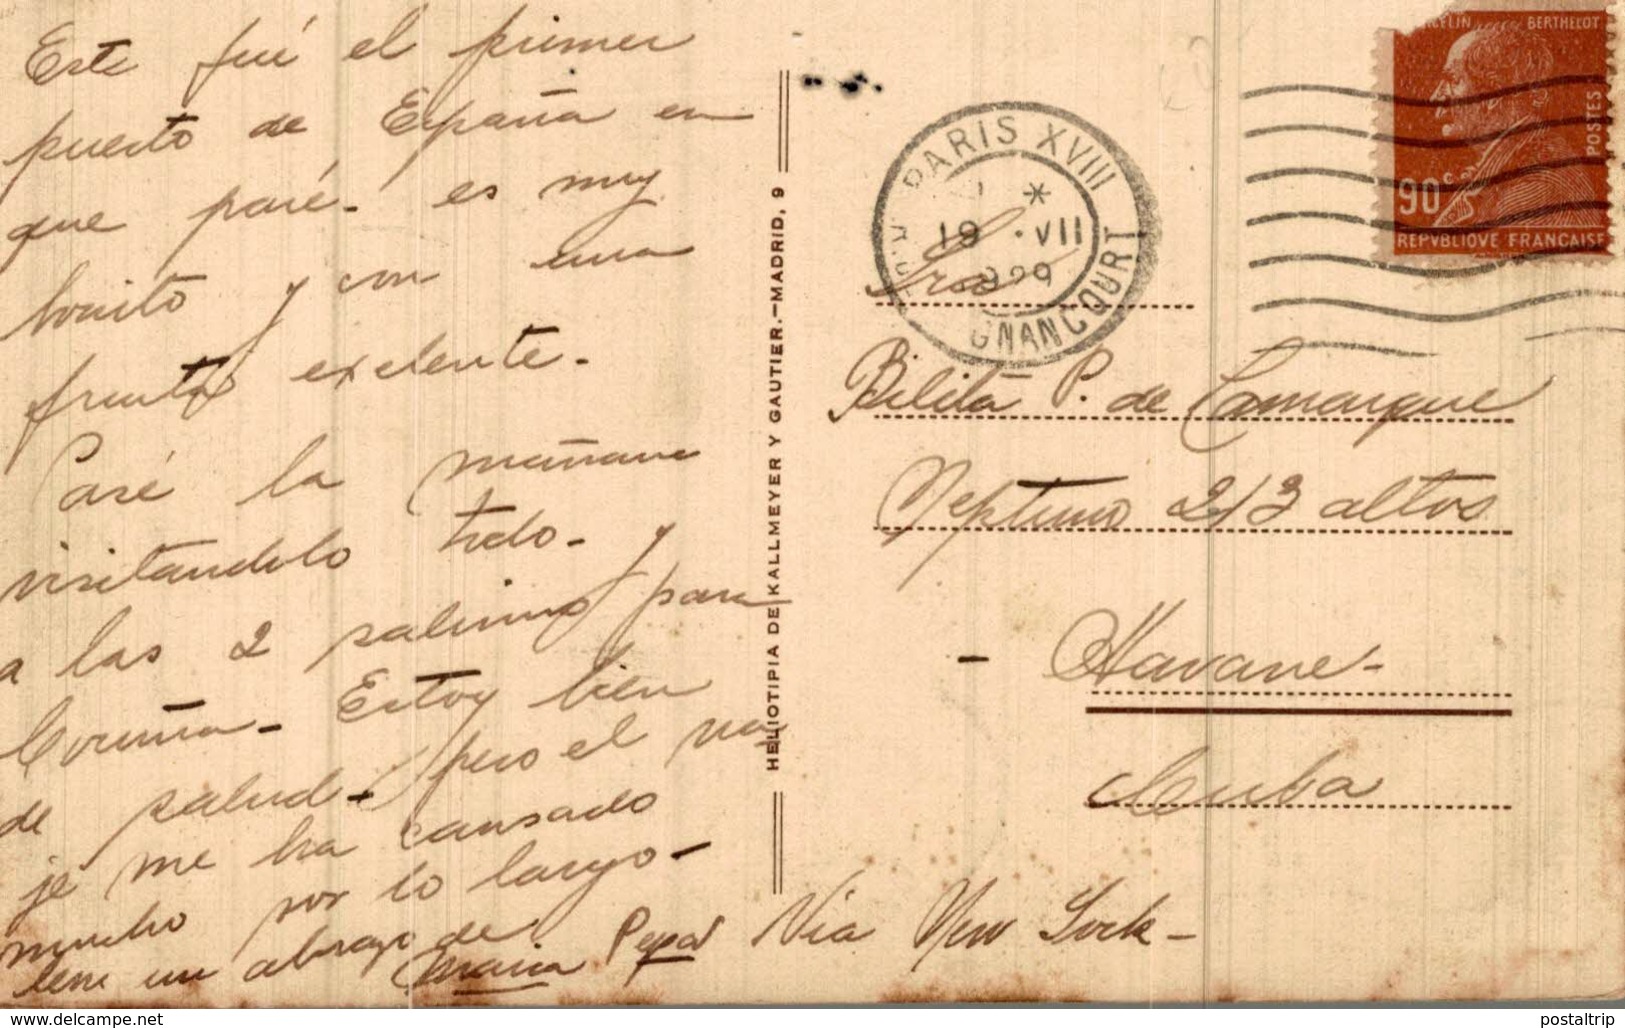 Este fué el primer
puerto de España en
que paré - es muy
bonito y con una
frente exelente -
Pasé la mañana
visitandolo todo - y
a las 2 salimos para
Coruña - Estoy bien
de salud - pero el via
je me ha cansado
mucho por lo largo -
un abrazo de
Maria Pepa
HELIOTIPIA DE KALLMEYER Y GAUTIER.-MADRID, 9
PARIS XVIII
19 VII
929
GNANCOURT
BERTHELOT
POSTES
90c
REPVBLIQVE FRANCAISE
Sra
Bilita P. de Camarque
Neptuno 213 altos
- Havane -
Cuba
Via New York -
www.delcampe.net
postaltrip